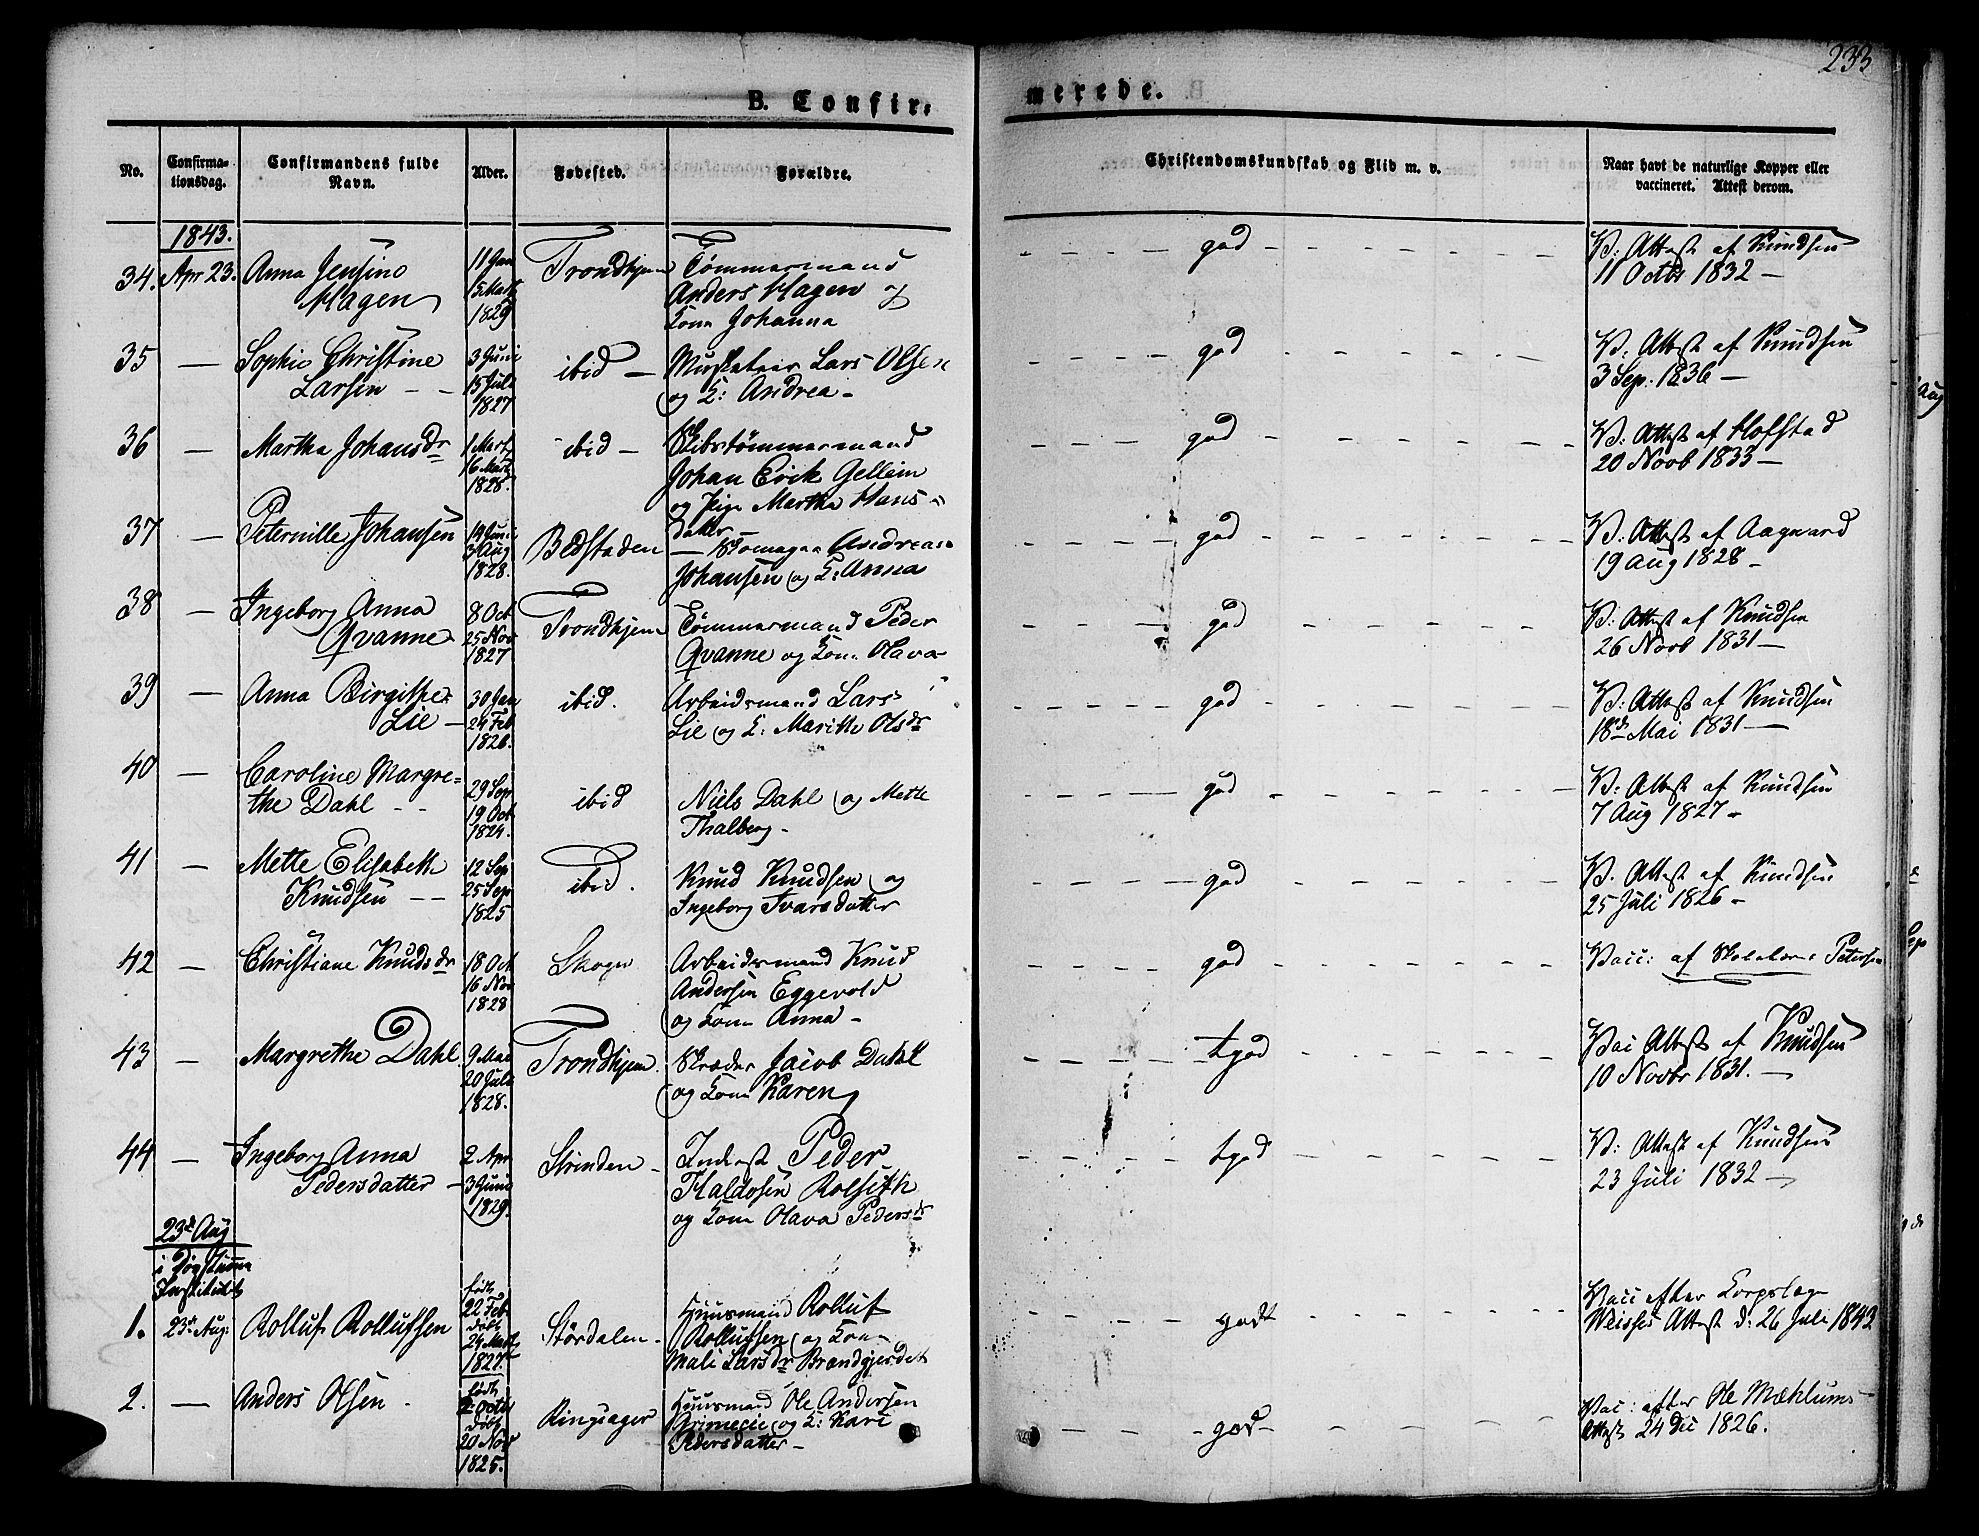 233
B. Confir-
merede.
No.
Confirma-
tionsdag.
Confirmandens fulde
Navn.
Alder.
Fødested.
Forældre.
Christendomskundskab og Flid m. v.
Naar havt de naturlige Kopper eller
vaccineret. Attest derom.
1843.
34. Apr 23. Anna Jensine
Hagen
11 Jan
15 Mart
1829
Trondhjem
Tømmermand
Anders Hagen og
Kone Johanna
god
V: Attest af Knudsen
11 Octbr 1832 —
35 — Sophie Christine
Larsen
3 Juni
15 Juli
1827
ibid —
Musketeer Lars Olsen
og K: Andrea -
god
V: Attest af Knudsen
3 Sep: 1836 —
36 — Martha Johansdr
1 Mart
16 Mart
1828.
ibid —
Skibstømmermand
Johan Erik Gellein
og Pige Martha Hans-
datter —
god
V: Attest af Hofstad
20 Novb 1833 —
37 — Peternille Johansen
14 Juni
3 Aug
1828.
Bedstaden
Andreas
Johansen og K: Anna
god
V. Attest af Aagaard
19 Aug 1828 -
38 — Ingeborg Anna
Qvanne
8 Oct
25 Nov
1827
Trondhjem
Tømmermand Peder
Qvanne og Kone Olava
god
V: Attest af Knudsen
26 Novb 1831 —
39 — Anna Birgithe
Lie —
30 Jan
24 Feb
1826.
ibid.
Arbeidsmand Lars
Lie og K: Marithe Olsdr
god
V: Attest af Knudsen
18de Mai 1831 —
40 — Caroline Margre=
the Dahl - -
29 Sep
19 Oct
1824.
ibid
Niels Dahl og Mette
Thalberg -
god
V: Attest af Knudsen
7 Aug 1827 -
41 — Mette Elisabeth
Knudsen - -
12 Sep
25 Sep
1825
ibid.
Knud Knudsen og
Ingeborg Ivarsdatter
god
V. Attest af Knudsen
25 Juli 1826 -
42 — Christiane Knudsdr
18 Oct
16 Nov
1828
Skogn
Arbeidsmand Knud
Andersen Eggevold
og Kone Anna -
god
Vacc: af Petersen
43 — Margrethe Dahl
9 Mai
20 Juli
1828.
Trondhjem.
Skræder Jacob Dahl
og Kone Karen
tgod
Vac Attest af Knudsen
10 Novbr 1831. —
44 — Ingeborg Anna
Pedersdatter —
2 Apr
3 Juni
1829.
Strinden -
Inderst Peder
Haldosen Rolseth
og Kone Olava Pedersdr
tgod
V: Attest af Knudsen
23 Juli 1832 —
23de Aug
i Døvstumme
Institutet
1. 23de Aug. Rolluf Rollufsen
født
22 Feb
døbt
24 Mart
1827.
Størdalen -
Huusmand Rolluf
Rollufsen og Kone
Mali Larsdr Brandgjerdet
godt
Vacc efter Corpslæge
Weisses Attest d: 26 Juli 1842
2. — Anders Olsen -
født
2 Octbr
døbt
20 Nov
1825.
Ringsager
Huusmand Ole Andersen
og K: Kari
Pedersdatter —
god -
Vac: efter Ole Mæhlums
Attest 24 Dec 1826.